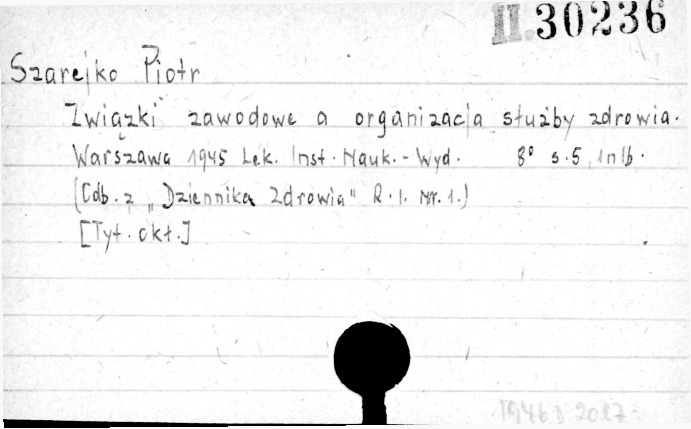 II.30236
Szarejko Piotr
Związki zawodowe a organizacja służby zdrowia.
Warszawa 1945 Lek. Inst. Nauk.-Wyd. 8° s.5, 1nlb.
(Odb. z „Dziennika Zdrowia" R.1. Nr.1.)
[Tyt. okł.]
1946 D 2027.